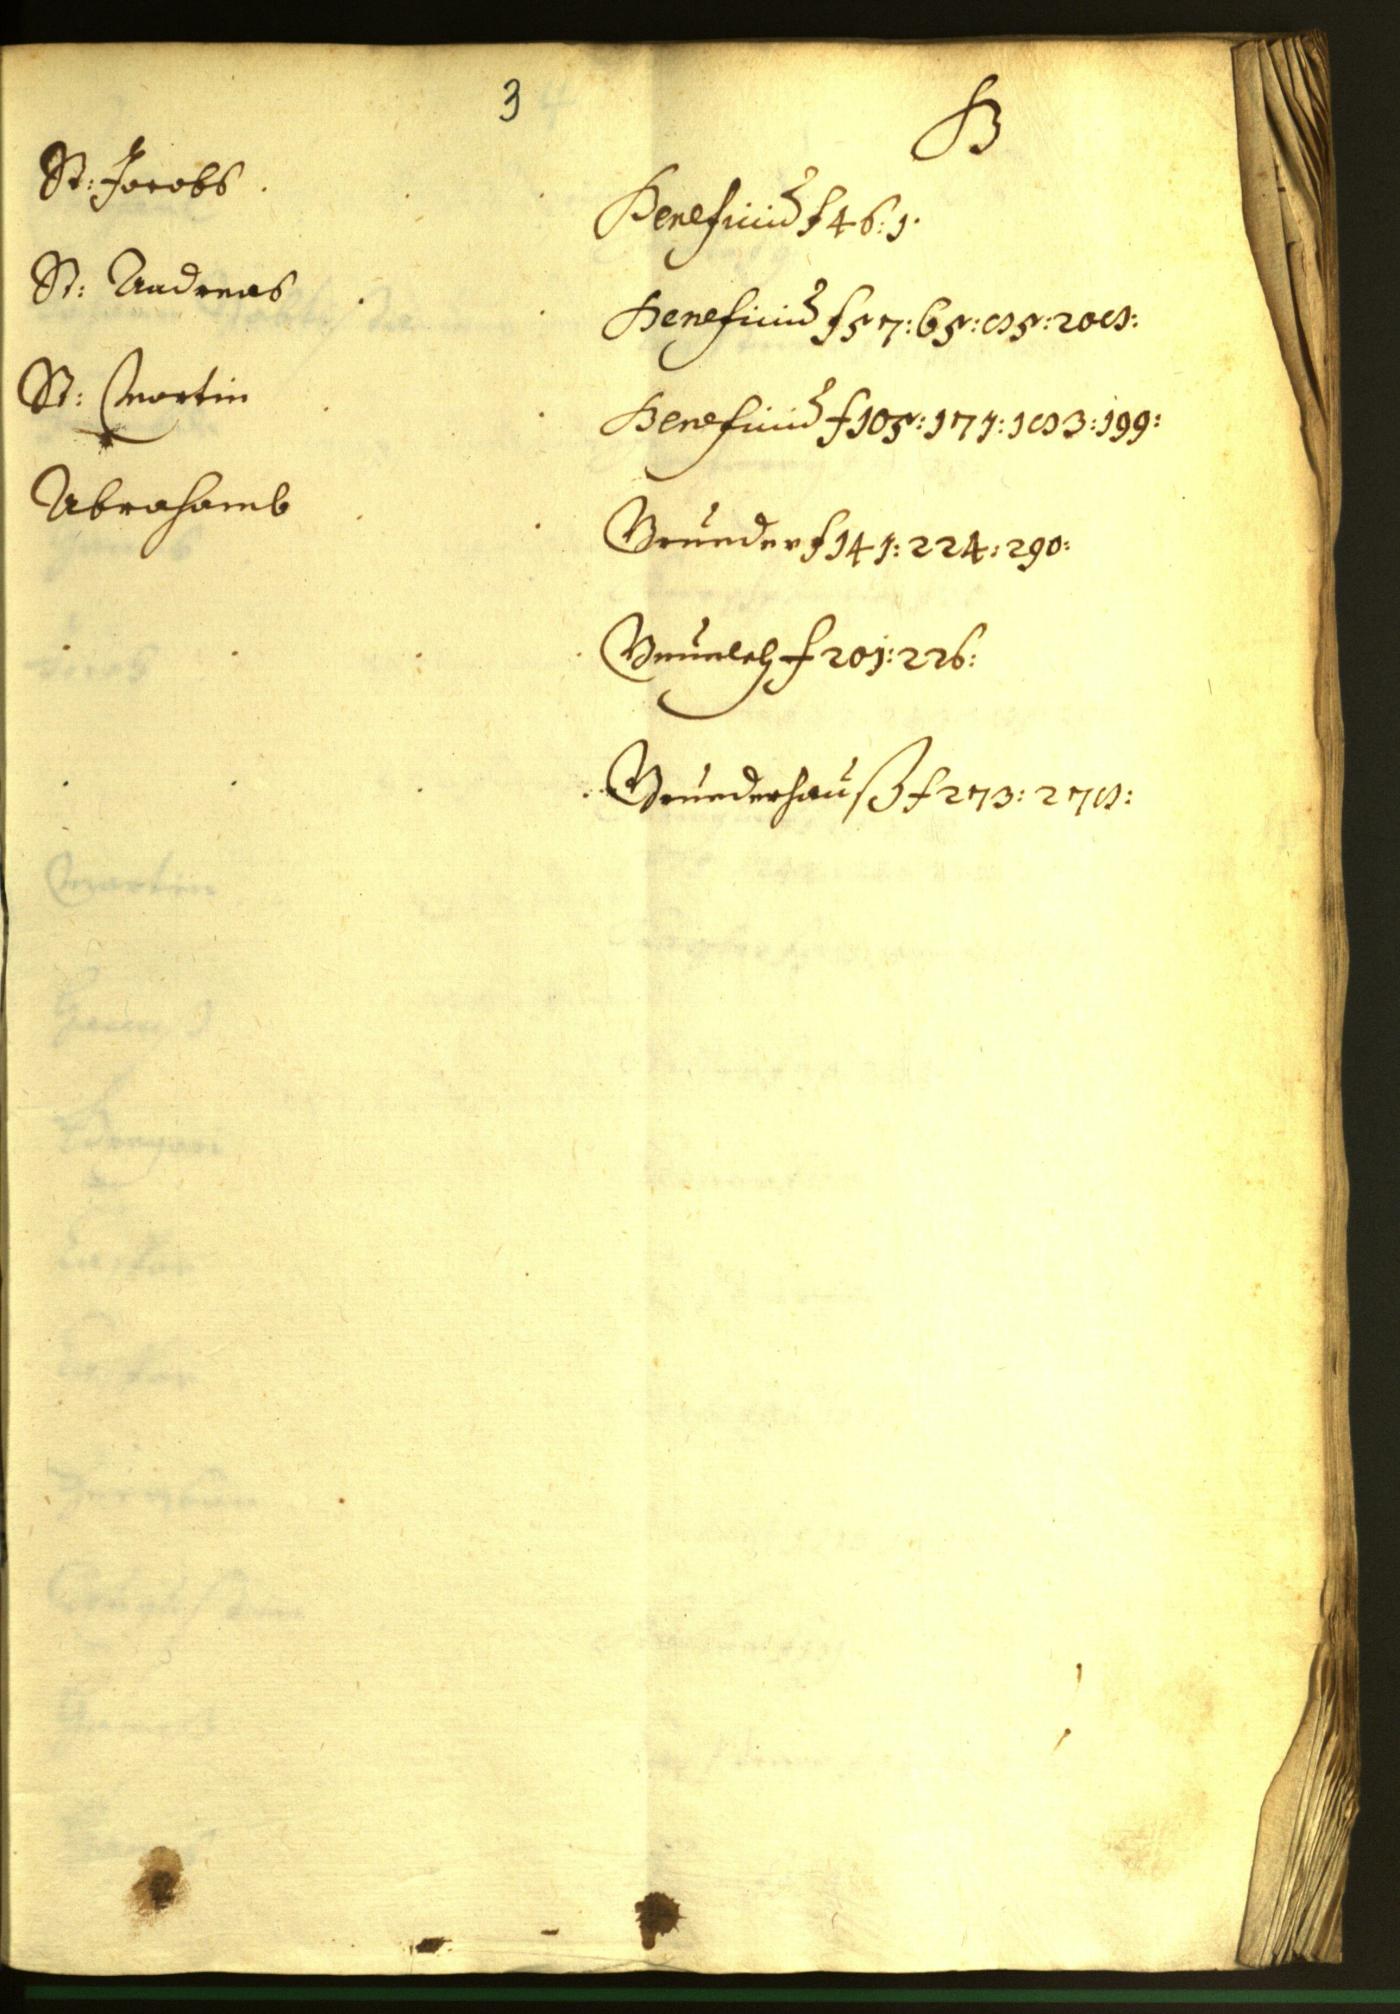 3
B
St: Jacobs . . . Beneficium f 46: 1.
St: Andreas . . Beneficium f 57: 65: 85: 208:
St: Martin . . Beneficium f 105: 171: 183: 199:
Abrahamb . . Brueder f 141: 224: 290:
. . . . f 201: 226:
. . . . Bruederhauß f 273: 278: